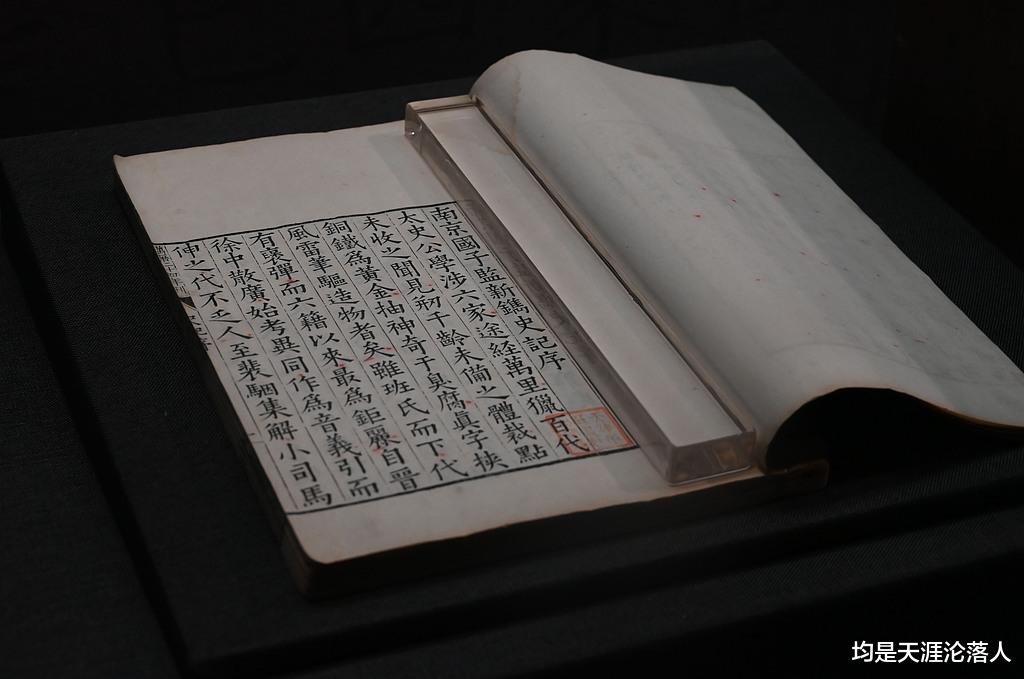 南京國子監新鐫史記序
太史公學涉六家途經萬里獵百代
未收之聞見刱千齡未俻之體裁點
銅鐵為黃金抽神奇于臭腐眞字挾
風雷筆驅造物者矣雖班氏而下代
有褒彈而六籍以來最為鉅麗自晉
徐中散廣始考異同作為音義引而
伸之代不乏人至裴駰集解小司馬
均是天涯沦落人